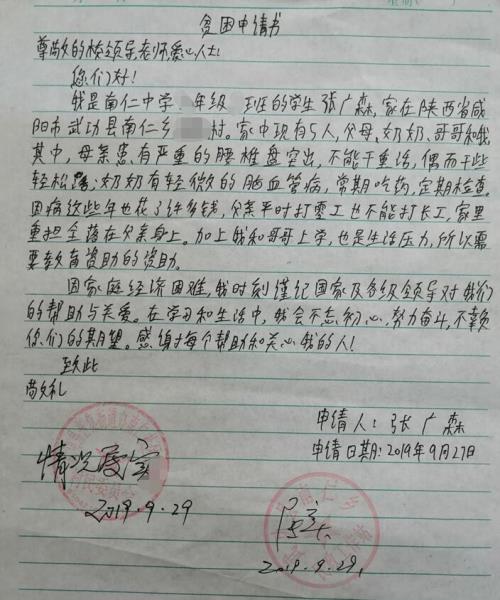 贫困申请书
尊敬的校领导老师爱心人士:
您们好!
我是南仁中学 年级 班的学生张广森,家在陕西省咸
阳市武功县南仁乡 村。家中现有5人,父母、奶奶、哥哥和我
其中,母亲患有严重的腰椎盘突出,不能干重活,偶而干些
轻松 ;奶奶有轻微的脑血管病,常期吃药,定期检查,
因病这些年也花了许多钱,父亲平时打零工也不能打长工,家里
重担全落在父亲身上。加上我和哥哥上学,也是生活压力,所以需
要教育资助的资助。
因家庭经济困难,我时刻谨记国家及各级领导对我们
的帮助与关爱。在学习和生活中,我会不忘初心,努力奋斗,不负
您们的期望。感谢每个帮助和关心我的人!
致此
敬礼
申请人:张广森
申请日期:2019年9月27日
情况属实
2019.9.29
2019.9.29